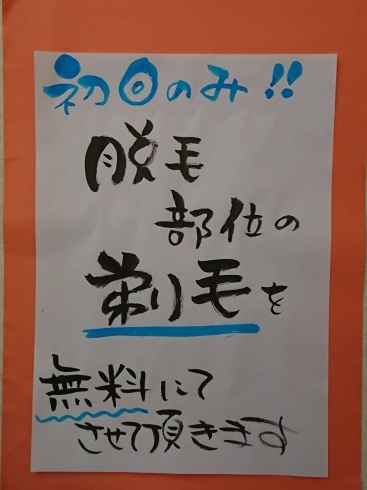 初回のみ!!
脱毛
部位の
剃毛を
無料にて
させて頂きます